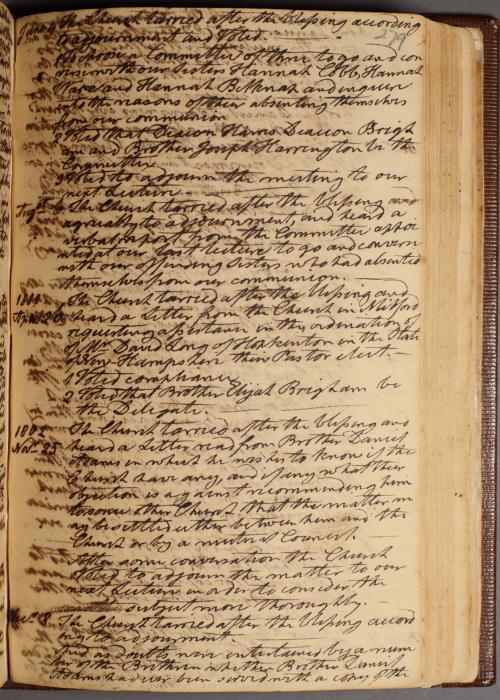 279
June 4 The Church tarried after the blessing according
to adjournment and Voted.
1 To choose a Committee of three to go and con
verse with our Sisters Hannah Cobb, Hannah
and Hannah Belknap and enquire
into the reasons of their absenting themselves
from our communion
2 Voted that Deacon Haws Deacon Brigh
am and Brother Joseph Harrington be the
Committee.
3 Voted to adjourn the meeting to our
next Lecture
The Church tarried after the blessing
agreeably to adjournment, and heard a
verbal report from the Committee appoi
nted at our last lecture to go and convers
with our offending Sisters who had absented
themselves from our communion.
The Church tarried after the blessing and
April 26 heard a Letter from the Church in Milford
requesting assistance in the ordination of
of Mr. David Long of Hopkinton in the State
of New Hampshire their Pastor elect.
1 Voted compliance
2 Voted that Brother Elijah Brigham be
the Delegate.
The Church tarried after the blessing and
Nov. 25 heard a Letter read from Brother Daniel
Adams in which he wishes to know if the
Church have any, and if any what their
objection is against recommending him
to some other Church that the matter m
ay be settled either between him and the
Church or by a mutual Council.
After some conversation the Church
Voted to adjourn the matter to our
next Lecture in order to consider the
subject more thoroughly.
8 The Church tarried after the blessing accord
ing to adjournment.
And as doubts were entertained by a num
ber of the Brethren whether Brother Daniel
Adams had ever been served with a copy of the